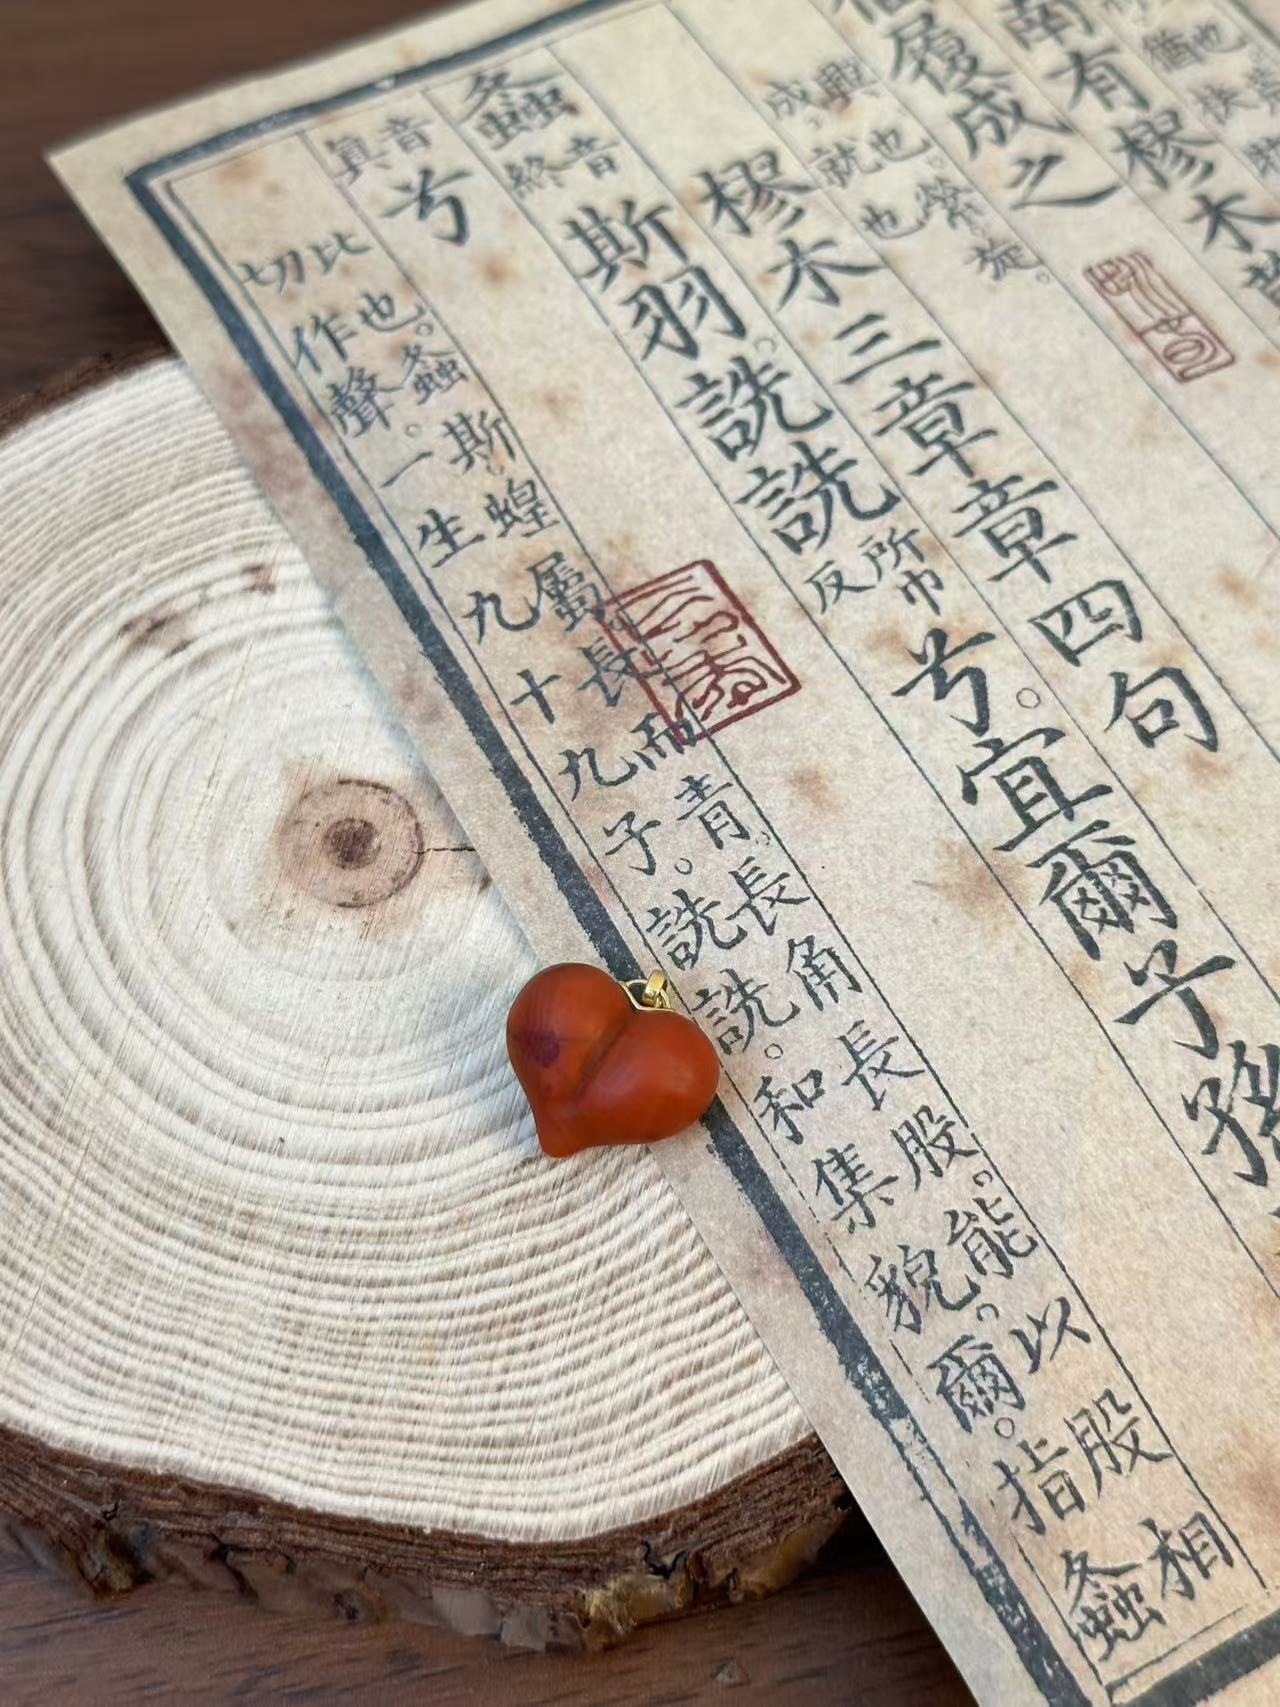 南有樛木
履成之
興也。縈。旋。
成。就也。
樛木三章章四句
螽音終斯羽。詵詵所巾反兮。宜爾子孫
音真兮
比也。螽斯。蝗屬。長而青。長角長股。能以股相
切作聲。一生九十九子。詵詵。和集貌。爾。指螽